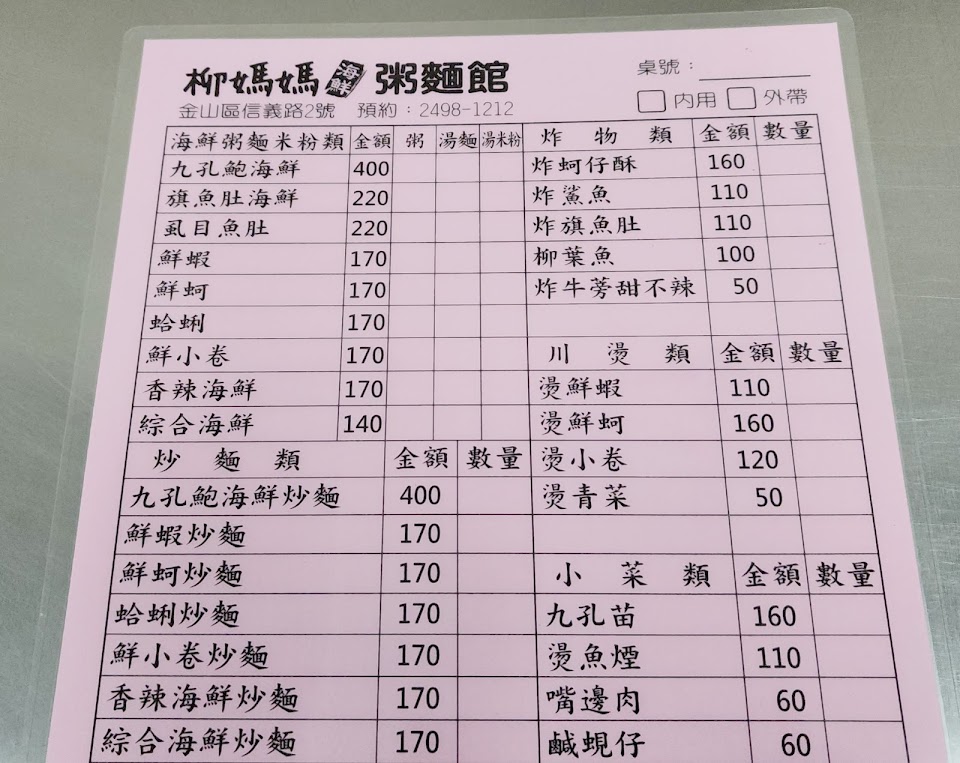 柳媽媽 海鮮 粥麵館
桌號：
金山區信義路2號 預約：2498-1212
內用 外帶
海鮮粥麵米粉類 金額 粥 湯麵 湯米粉
九孔鮑海鮮 400
旗魚肚海鮮 220
虱目魚肚 220
鮮蝦 170
鮮蚵 170
蛤蜊 170
鮮小卷 170
香辣海鮮 170
綜合海鮮 140
炒麵類 金額 數量
九孔鮑海鮮炒麵 400
鮮蝦炒麵 170
鮮蚵炒麵 170
蛤蜊炒麵 170
鮮小卷炒麵 170
香辣海鮮炒麵 170
綜合海鮮炒麵 170
炸物類 金額 數量
炸蚵仔酥 160
炸鯊魚 110
炸旗魚肚 110
柳葉魚 100
炸牛蒡甜不辣 50
川燙類 金額 數量
燙鮮蝦 110
燙鮮蚵 160
燙小卷 120
燙青菜 50
小菜類 金額 數量
九孔苗 160
燙魚煙 110
嘴邊肉 60
鹹蜆仔 60